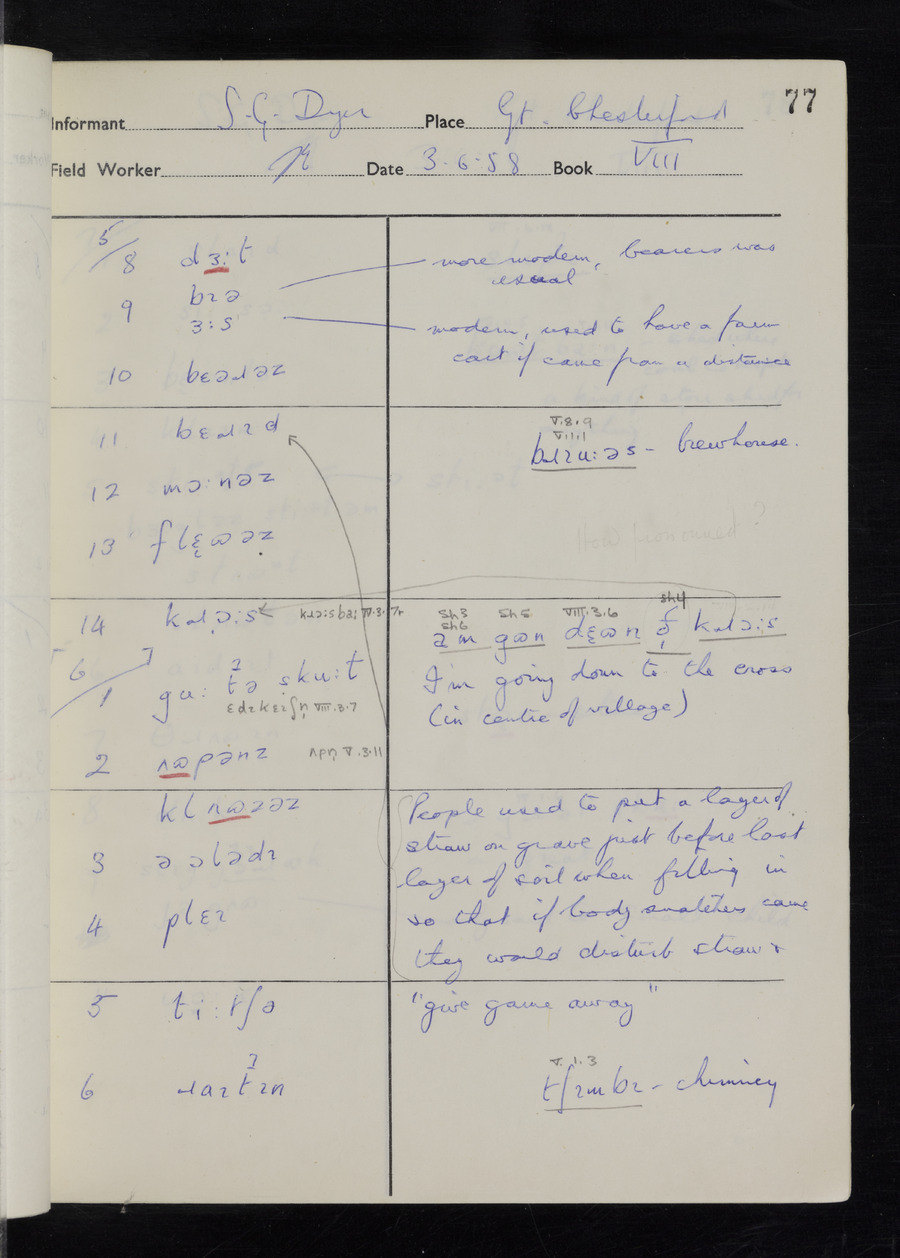 77
Informant S. G. Dyer Place Gt. Chesterford
Field Worker Date 3·6·58 Book VIII
5/8 dɜ:t
more modern, bearers was
usual
9 bɪə
ɜ:s
modern, used to have a farm
cart if came from a distance
10 bɛəɹəz
11 bɛɹɪd
V.8.9
V.1.1
bɹɪu:əs - brewhouse.
12 mɔ:nəz
13 flɛ̞ɷəz
How pronounced?
14 kɹɔ̣:s
sh3 sh5 VIII.3.6 sh4
sh6
gɷn dɛ̞ɷn kɹɔ:s
I'm going down to the cross
(in centre of village)
6/1 gu: tə sku:t
VIII.3.7
2 ʌɷpənz ʌpn̩ V.3.11
3 əələdɪ
4 plɛɪ
People used to put a layer of
straw on grave just before last
layer of soil when filling in
so that if body snatchers came
they would disturb straw &
"give game away"
5 ti:tʃə
6 ɹaɪtɪn
V.1.3
tʃɪmbɪ - chimney